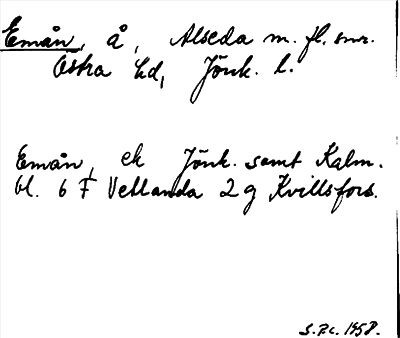 Emån, å, Alseda m. fl. snr.
Östra hd, Jönk. l.
Emån, ek Jönk. samt Kalm.
bl. 6 F Vetlanda 2 g Kvillsfors.
1958.